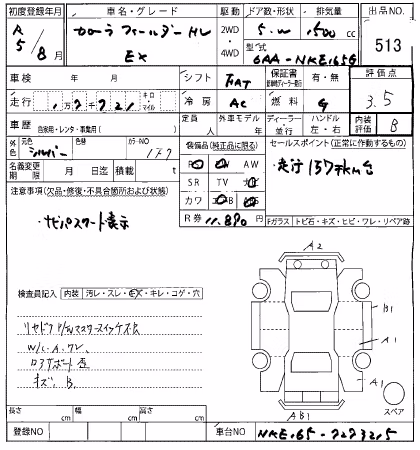 初度登録年月
車名・グレード
駆動
ドア数・形状
排気量
出品NO.
R 5/8月
カローラフィールダー HV
EX
2WD
4WD
5.W
1500 cc
型式
6AA-NKE165G
513
車検 年 月
シフト FAT
保証書
有・無
評価点
3.5
走行
キロ
マイル
冷房 AC
燃料 G
車歴
自家用・レンタ・事業用( )
定員 人
外車モデル 年
ディーラー 並行
ハンドル 左・右
内装評価 B
外色
元色 シルバー
色替
カラーNO 1F7
装備品(純正品に限る)
セールスポイント(正常に作動するもの)
名義変更期限 月 日
積載 t
AW
SR TV
カワ
走行137千km台
注意事項(欠品・修復・不具合箇所および状態)
ナビパスワード表示
R券 11,890 円
Fガラス トビ石・キズ・ヒビ・ワレ・リペア跡
検査員記入
内装 汚レ・スレ・キズ・キレ・コゲ・穴
W/C.A.ワレ
キズ.B.
A2
B1
A1
A1
AB1
スペア
長さ cm
幅 cm
高さ cm
登録NO
車台NO NKE165-7273215